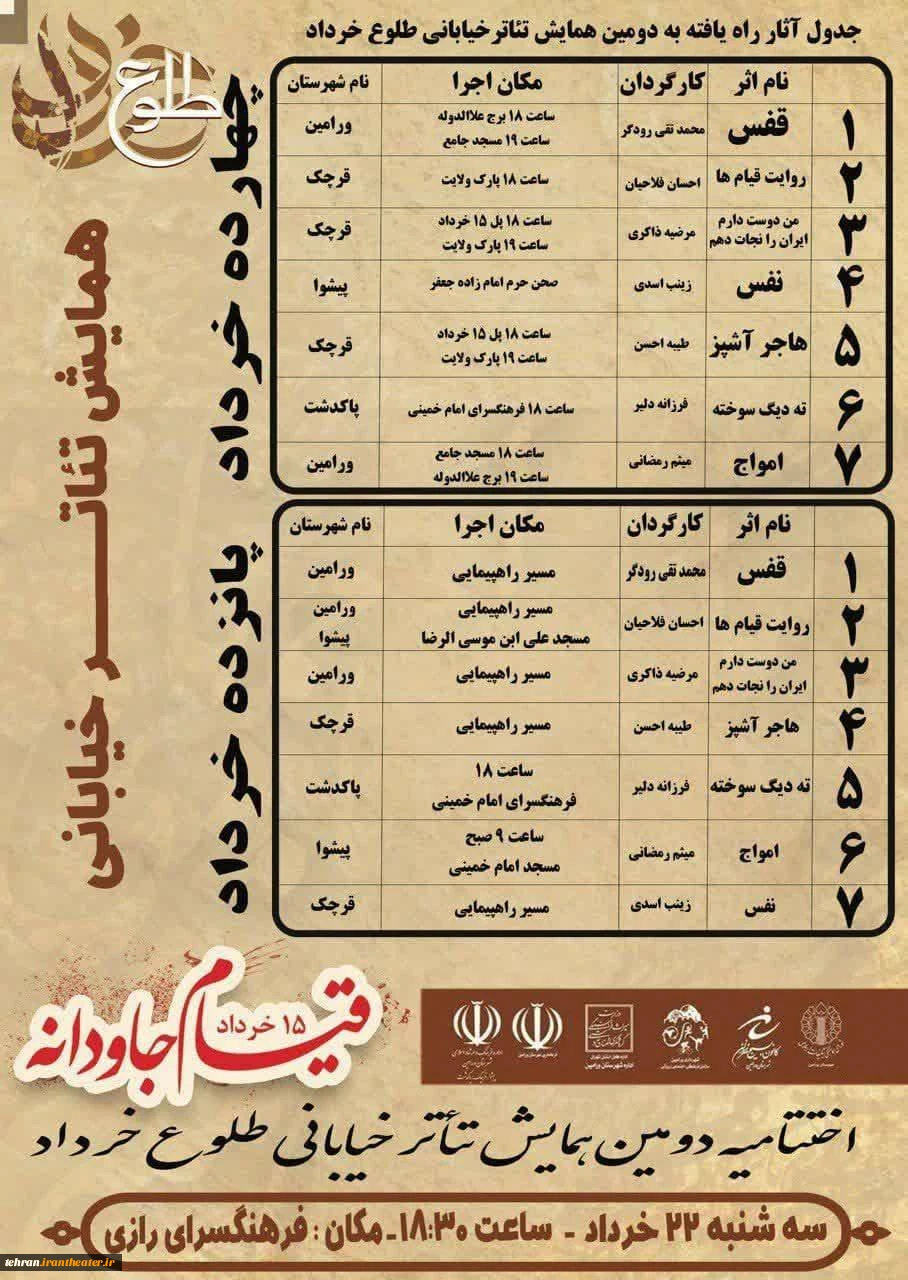 جدول آثار راه یافته به دومین همایش تئاترخیابانی طلوع خرداد
طلوع
همایش تئاتر خیابانی
چهارده خرداد
نام اثر کارگردان مکان اجرا نام شهرستان
۱ قفس محمد تقی رودگر ساعت ۱۸ برج علاالدوله ورامین
ساعت ۱۹ مسجد جامع
۲ روایت قیام ها احسان فلاحیان ساعت ۱۸ پارک ولایت قرچک
۳ من دوست دارم مرضیه ذاکری ساعت ۱۸ پل ۱۵ خرداد قرچک
ایران را نجات دهم ساعت ۱۹ پارک ولایت
۴ نفس زینب اسدی صحن حرم امام زاده جعفر پیشوا
۵ هاجر آشپز طیبه احسن ساعت ۱۸ پل ۱۵ خرداد قرچک
ساعت ۱۹ پارک ولایت
۶ ته دیگ سوخته فرزانه دلیر ساعت ۱۸ فرهنگسرای امام خمینی پاکدشت
۷ امواج میثم رمضانی ساعت ۱۸ مسجد جامع ورامین
ساعت ۱۹ برج علاالدوله
پانزده خرداد
نام اثر کارگردان مکان اجرا نام شهرستان
۱ قفس محمد تقی رودگر مسیر راهپیمایی ورامین
۲ روایت قیام ها احسان فلاحیان مسیر راهپیمایی ورامین
مسجد علی ابن موسی الرضا پیشوا
۳ من دوست دارم مرضیه ذاکری مسیر راهپیمایی ورامین
ایران را نجات دهم
۴ هاجر آشپز طیبه احسن مسیر راهپیمایی قرچک
۵ ته دیگ سوخته فرزانه دلیر ساعت ۱۸ پاکدشت
فرهنگسرای امام خمینی
۶ امواج میثم رمضانی ساعت ۹ صبح پیشوا
مسجد امام خمینی
۷ نفس زینب اسدی مسیر راهپیمایی قرچک
قیام جاودانه
۱۵ خرداد
اختتامیه دومین همایش تئأتر خیابانی طلوع خرداد
سه شنبه ۲۲ خرداد - ساعت ۱۸:۳۰ - مکان : فرهنگسرای رازی
tehran.irantheater.ir